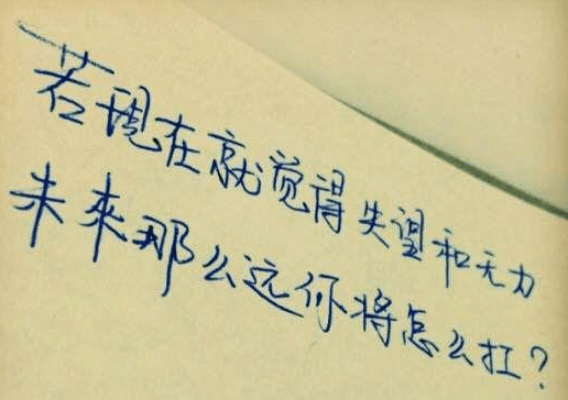 若现在就觉得失望和无力
未來那么远你将怎么扛？